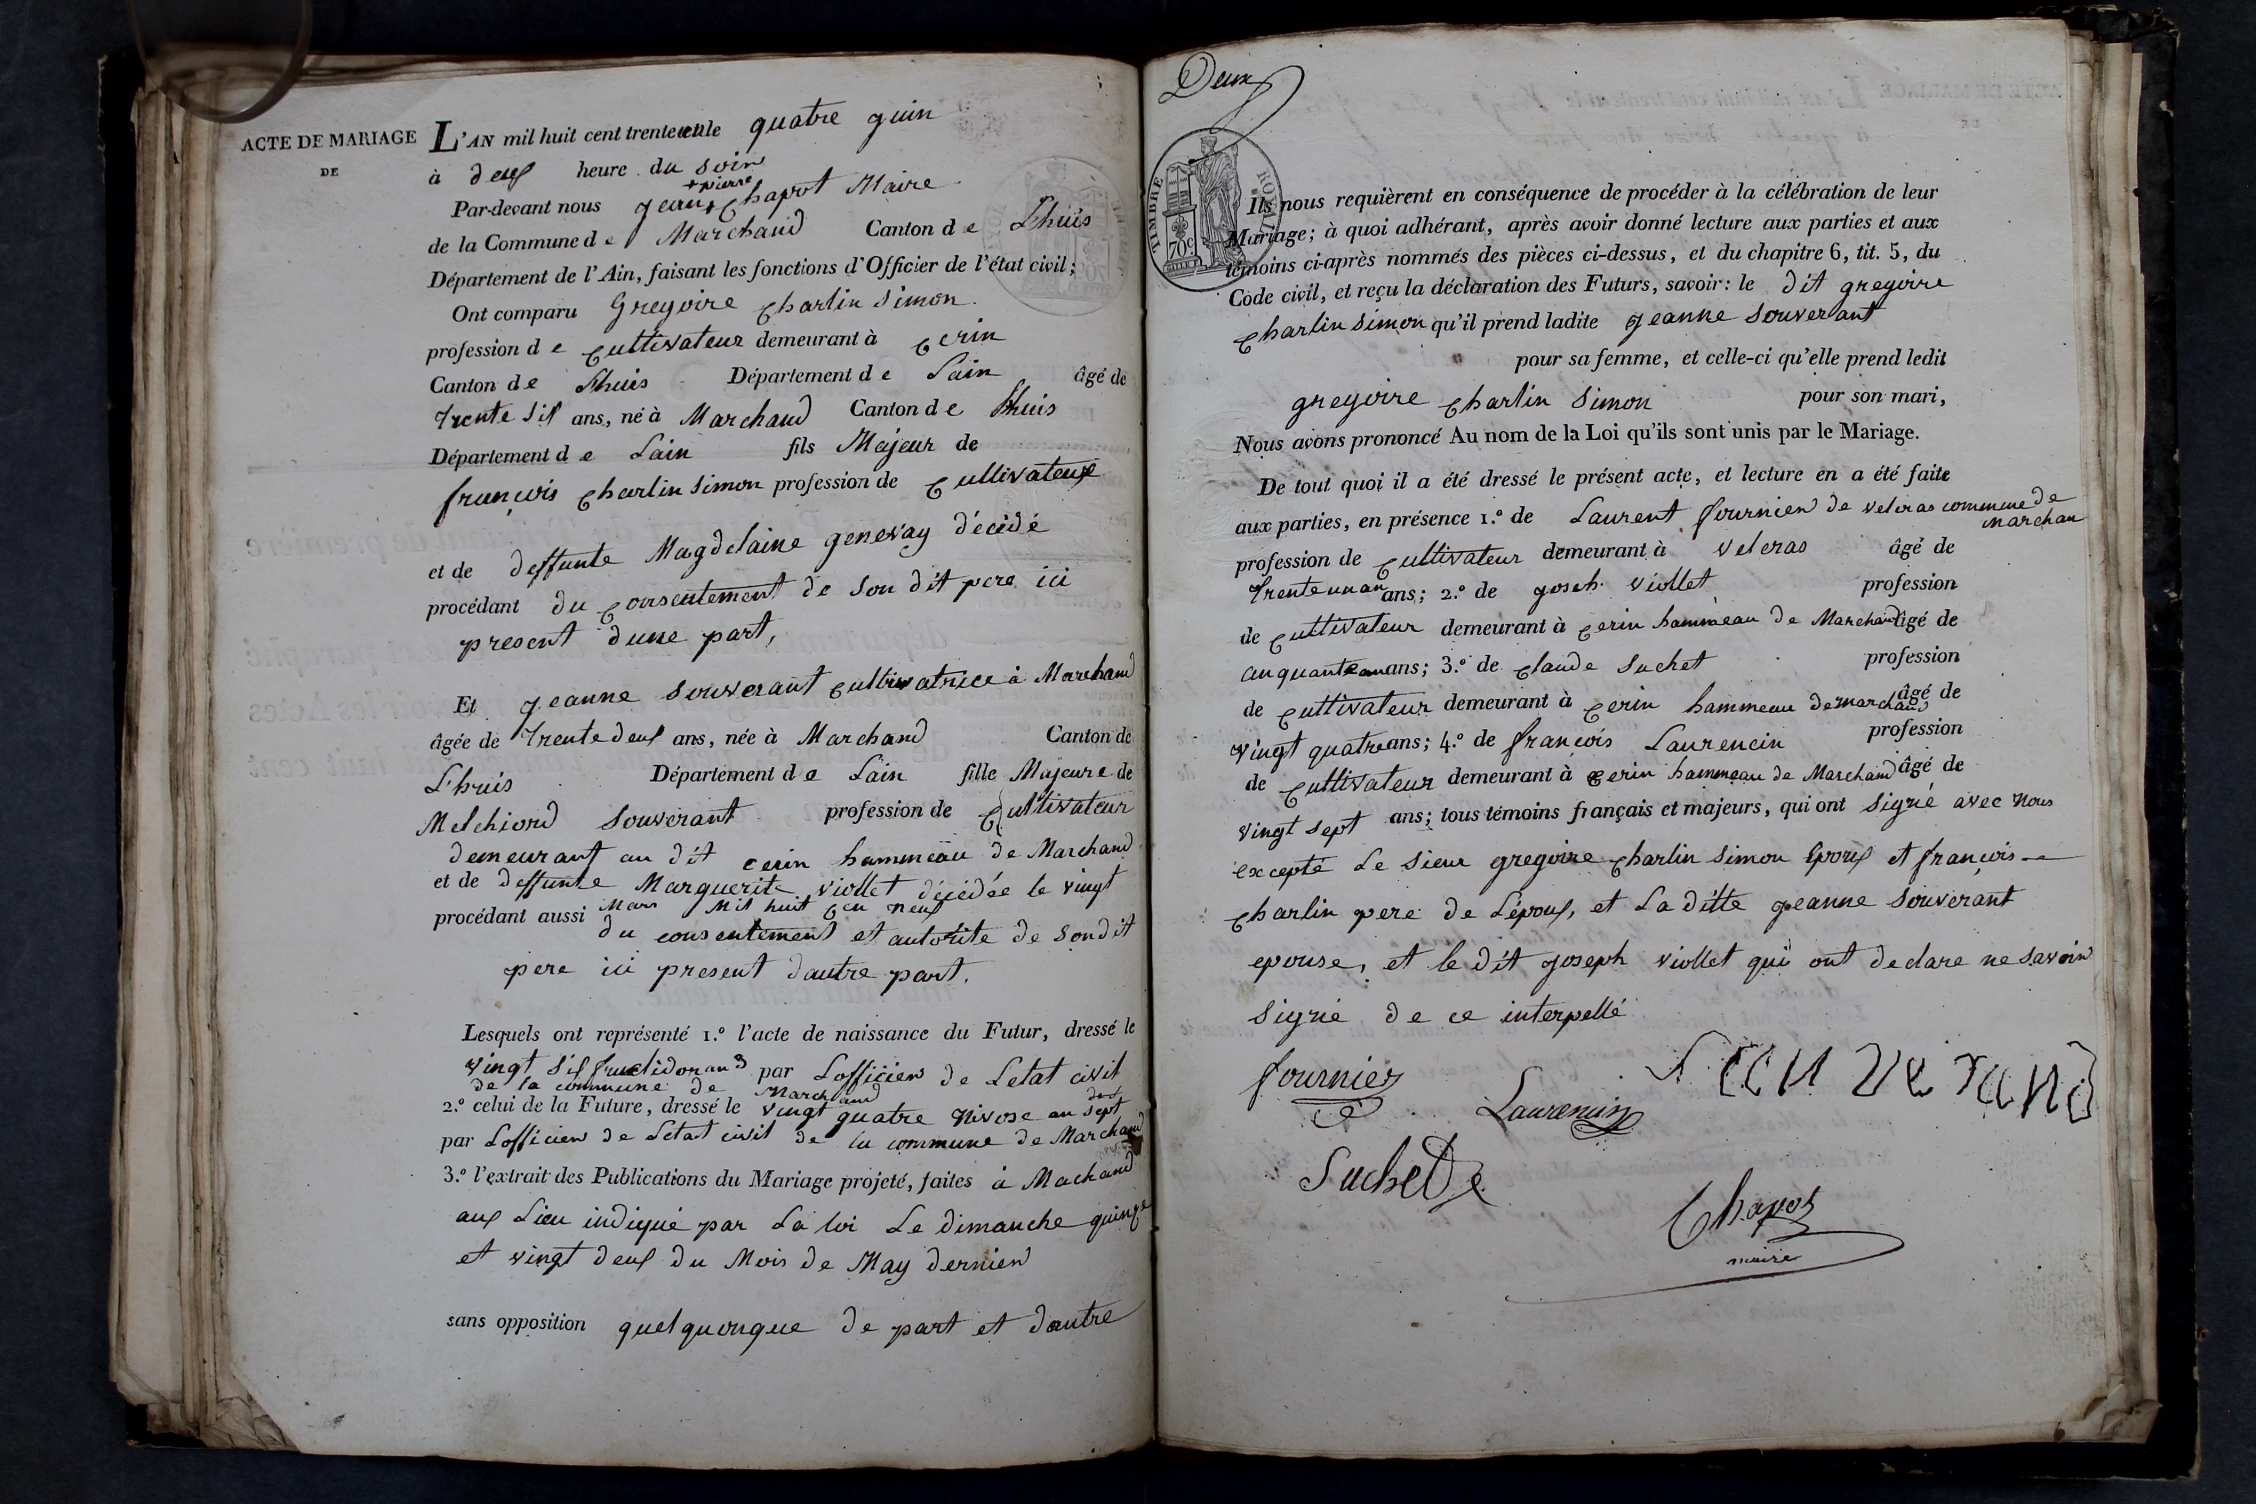 ACTE DE MARIAGE
DE
L'AN mil huit cent trente le quatre juin
à deux heure du soir
+ pierre
Par-devant nous jean + Chapot Maire
de la Commune de Marchand Canton de Lhuis
Département de l'Ain, faisant les fonctions d'Officier de l'état civil;
Ont comparu Gregoire Charlin Simon
profession de Cultivateur demeurant à Cerin
Canton de Lhuis Département de Lain âgé de
Trente Six ans, né à Marchand Canton de Lhuis
Département de Lain fils Majeur de
françois Charlin Simon profession de Cultivateur
et de deffunte Magdelaine genevay décédé
procédant du Consentement de Son dit pere ici
present dune part,
Et jeanne Souverant Cultivatrice à Marchand
âgée de Trente deux ans, née à Marchand Canton de
Lhuis Département de Lain fille Majeure de
Melchiord Souverant profession de Cultivateur
demeurant au dit cerin hammeau de Marchand
et de deffunte Marguerite Viollet décédée le vingt
Mars Mil huit Cen neuf
procédant aussi du consentement et autorité de Sondit
pere ici present dautre part.
Lesquels ont représenté 1.º l'acte de naissance du Futur, dressé le
vingt Six fructidor an 3 par Lofficier de Letat civil
de la commune de Marchand
2.º celui de la Future, dressé le vingt quatre Nivose an Sept
par Lofficier de Letat civil de la commune de Marchand
3.º l'extrait des Publications du Mariage projeté, faites à Machand
aux Lieu indiqué par La loi Le dimanche quinze
et vingt deux du Mois de May dernier
sans opposition quelquonque de part et dautre
Deux
TIMBRE ROYAL
70c
Ils nous requièrent en conséquence de procéder à la célébration de leur
Mariage; à quoi adhérant, après avoir donné lecture aux parties et aux
témoins ci-après nommés des pièces ci-dessus, et du chapitre 6, tit. 5, du
Code civil, et reçu la déclaration des Futurs, savoir: le dit gregoire
Charlin Simon qu'il prend ladite jeanne Souverant
pour sa femme, et celle-ci qu'elle prend ledit
gregoire Charlin Simon pour son mari,
Nous avons prononcé Au nom de la Loi qu'ils sont unis par le Mariage.
De tout quoi il a été dressé le présent acte, et lecture en a été faite
aux parties, en présence 1.º de Laurent fournier de veleras commune de
marchan
profession de Cultivateur demeurant à Veleras âgé de
Trente un an ans; 2.º de joseh Viollet profession
de Cultivateur demeurant à Cerin hammeau de Marchand âgé de
ans; 3.º de Claude Suchet profession
de Cultivateur demeurant à Cerin hammeau de marchand âgé de
vingt quatre ans; 4.º de françois Laurencin profession
de Cultivateur demeurant à Cerin hammeau de Marchand âgé de
vingt sept ans; tous témoins français et majeurs, qui ont Signé avec Nous
excepté Le Sieur gregoire Charlin Simon Epoux et françois
Charlin pere de Lépoux, et La ditte jeanne Souverant
epouse, et le dit joseph viollet qui ont declare ne savoir
Signé de ce interpellé
fournier
Laurencin
Souverand
Suchet
Chapot
maire